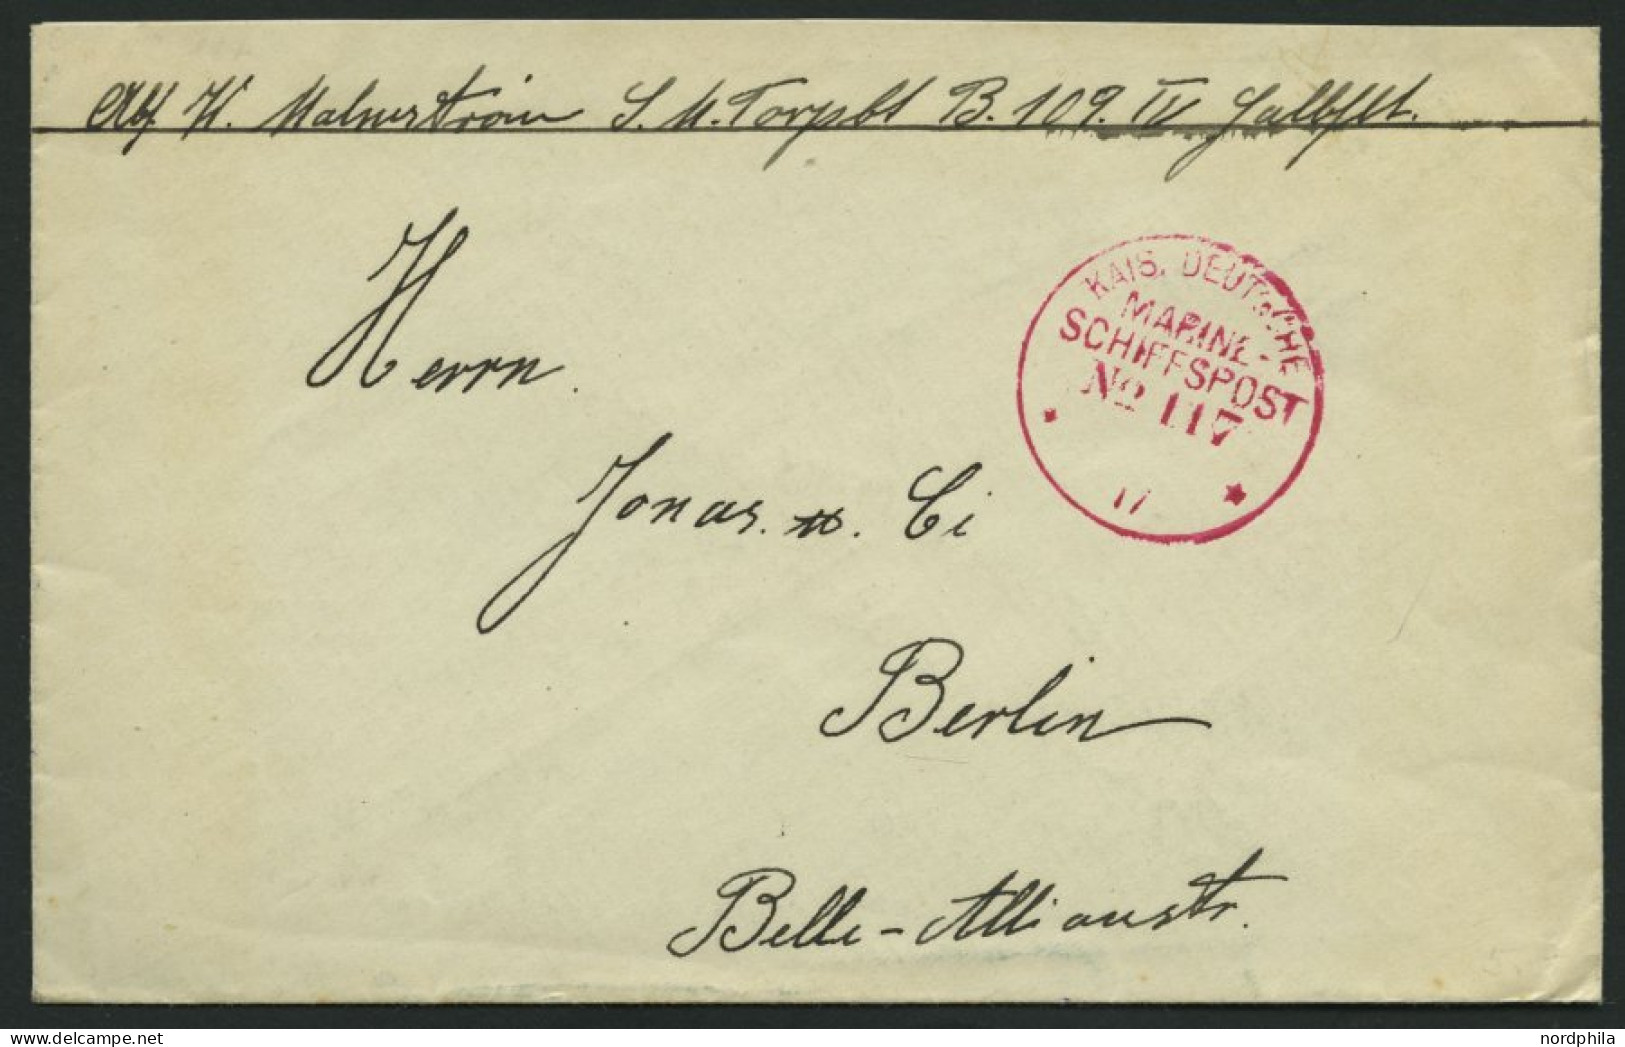 Abs. H. Malmström S. M. Torpbt B. 109. IV Halbflt.
KAIS. DEUTSCHE
MARINE-
SCHIFFSPOST
No 117
17
Herrn
Jonas. u. Ci
Berlin
Belle-Allianstr.
nordphila